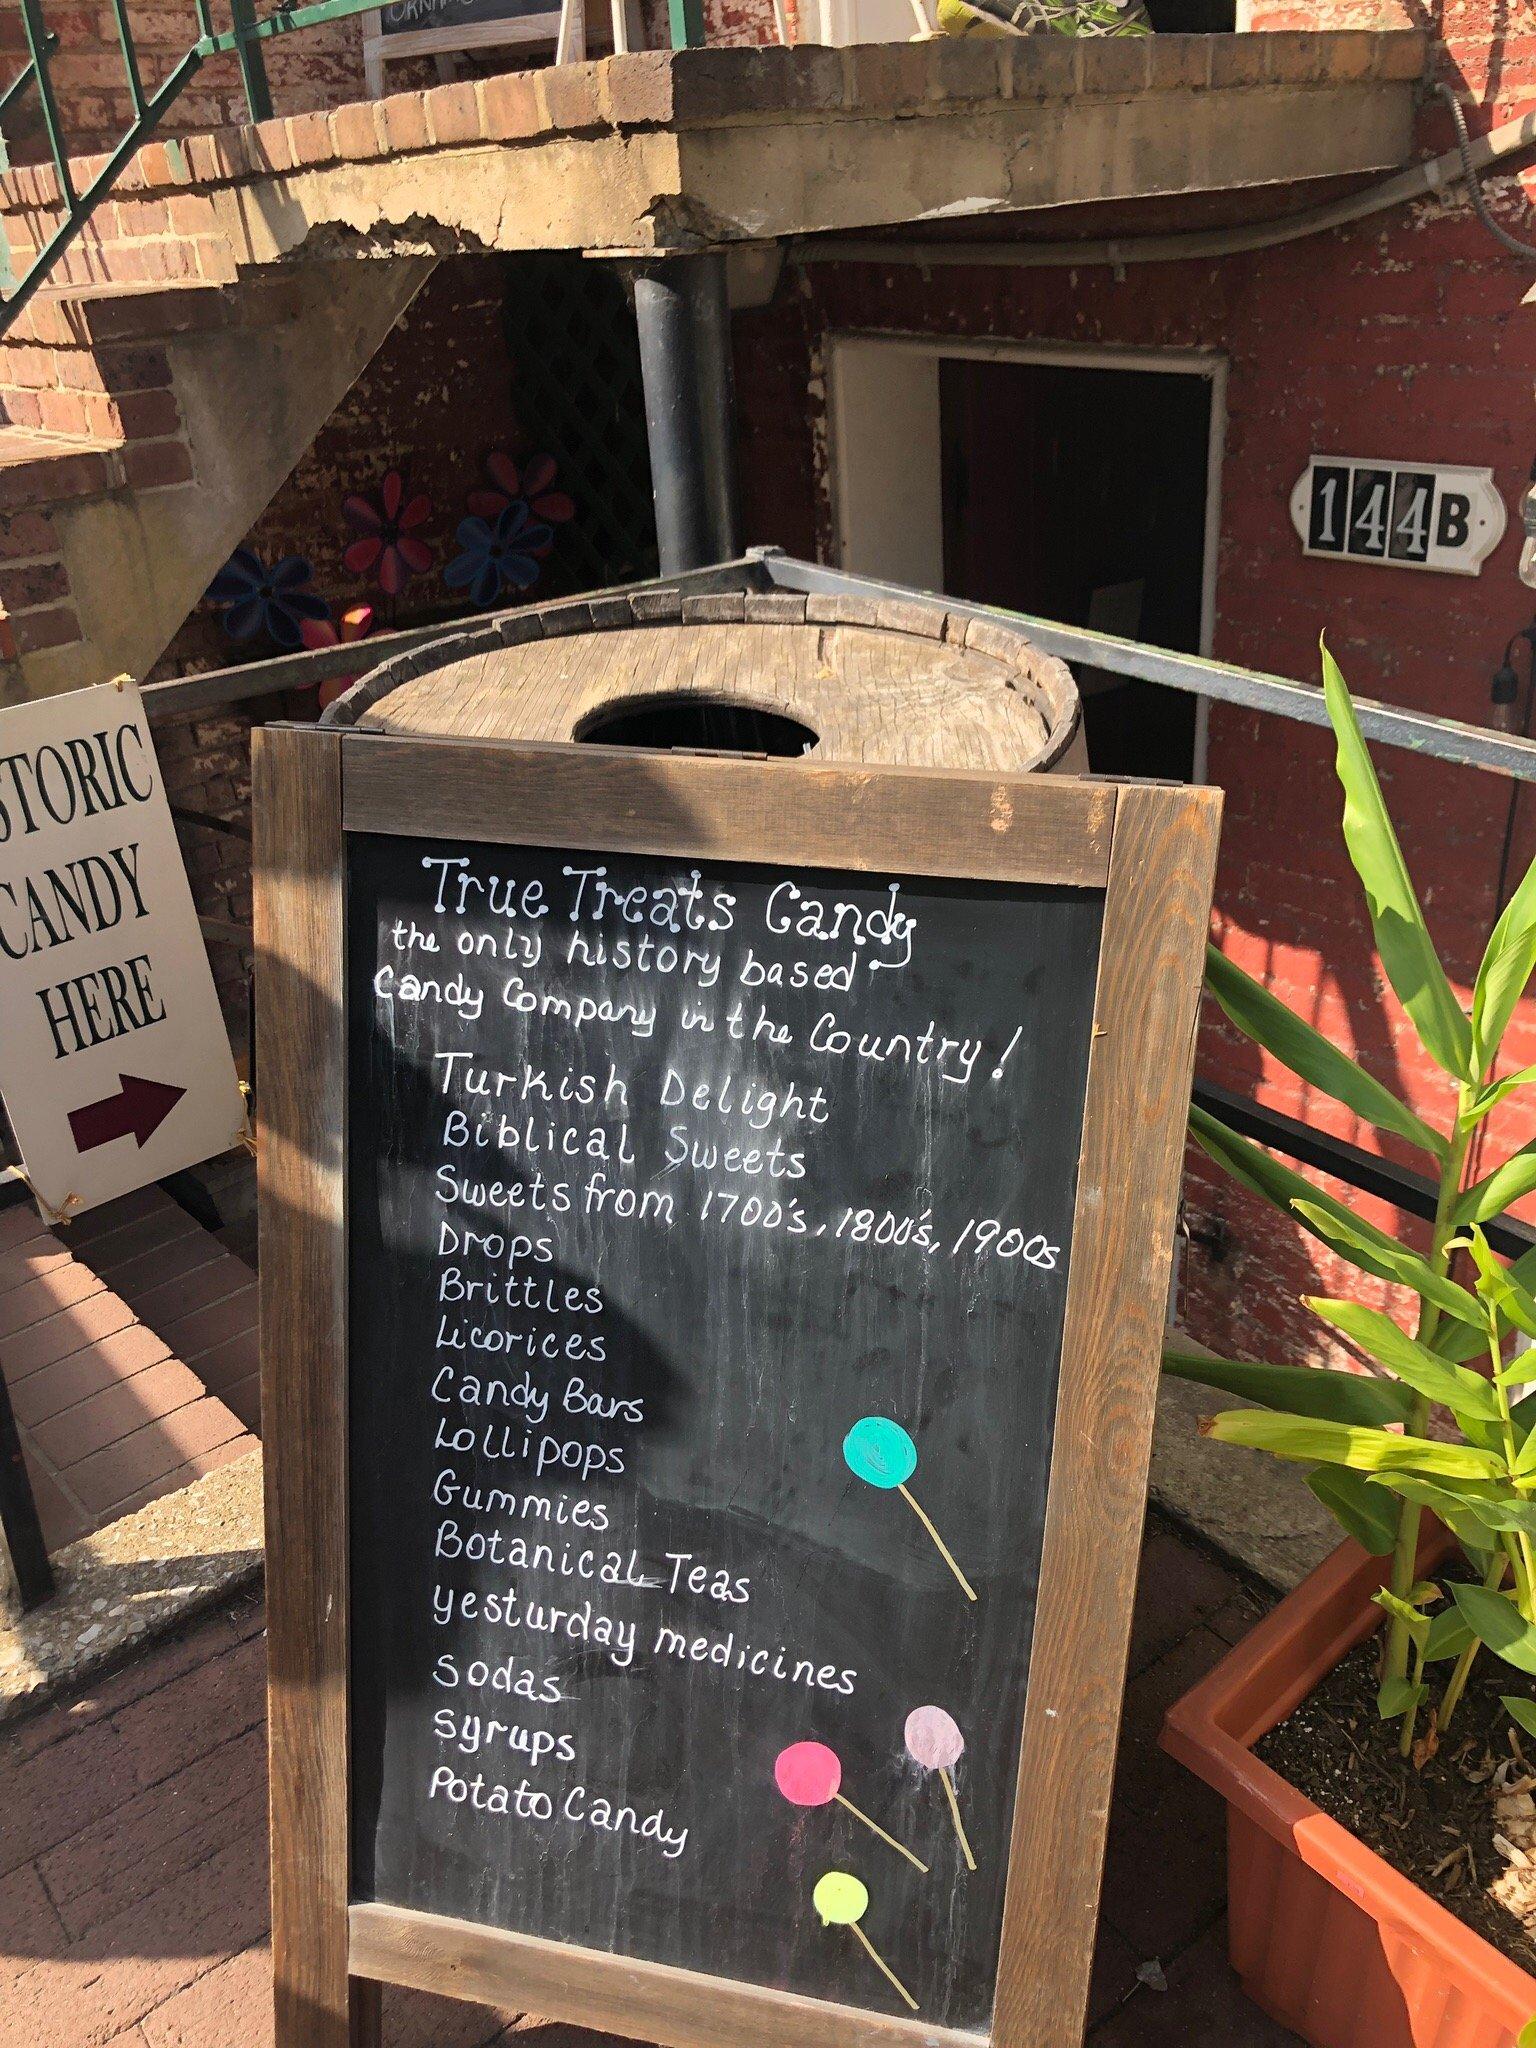 144B
STORIC
CANDY
HERE
True Treats Candy
the only history based
Candy Company in the Country!
Turkish Delight
Biblical Sweets
Sweets from 1700's, 1800's, 1900s
Drops
Brittles
Licorices
Candy Bars
Lollipops
Gummies
Botanical Teas
yesturday medicines
sodas
syrups
Potato Candy